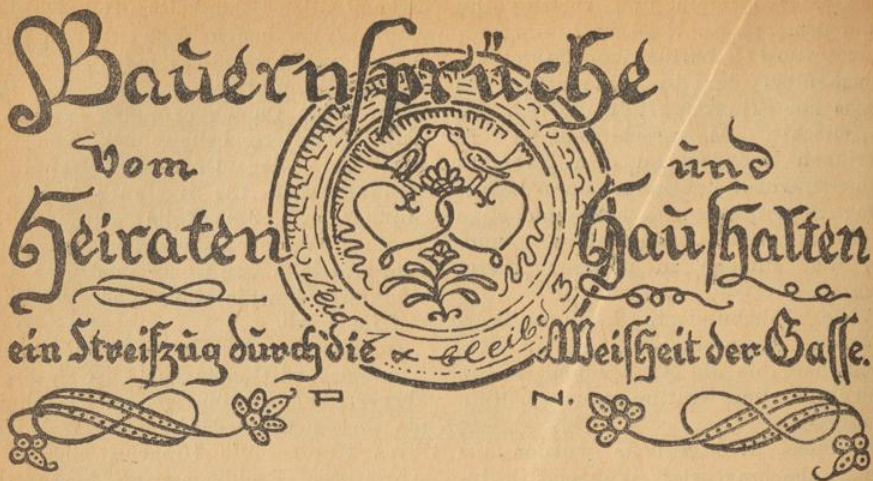 Bauernsprüche
vom
und
Heiraten
Haushalten
ein Streifzug durch die
Weisheit der Gasse.
bleibe
P N.